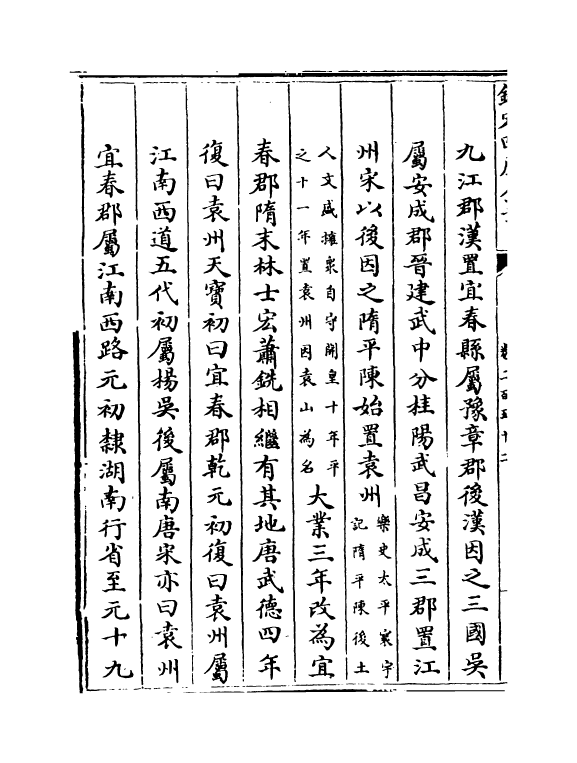 九江郡漢置宜春縣屬豫章郡後漢因之三國吳
屬安成郡晉建武中分桂陽武昌安成三郡置江
州宋以後因之隋平陳始置袁州
樂史太平寰宇
記隋平陳後土
人文盛擁衆自守開皇十年平
之十一年置袁州因袁山為名
大業三年改為宜
春郡隋末林士宏蕭銑相繼有其地唐武德四年
復曰袁州天寶初曰宜春郡乾元初復曰袁州屬
江南西道五代初屬楊吳後屬南唐宋亦曰袁州
宜春郡屬江南西路元初隸湖南行省至元十九